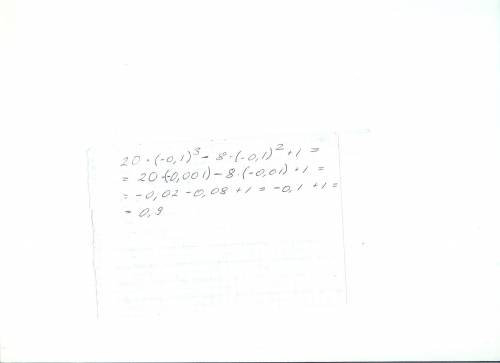 20·(-0,1)³- 8·(-0,1)²+1 =
= 20·(-0,001) - 8·(-0,01) +1 =
= -0,02 -0,08 +1 = -0,1 +1 =
= 0,9